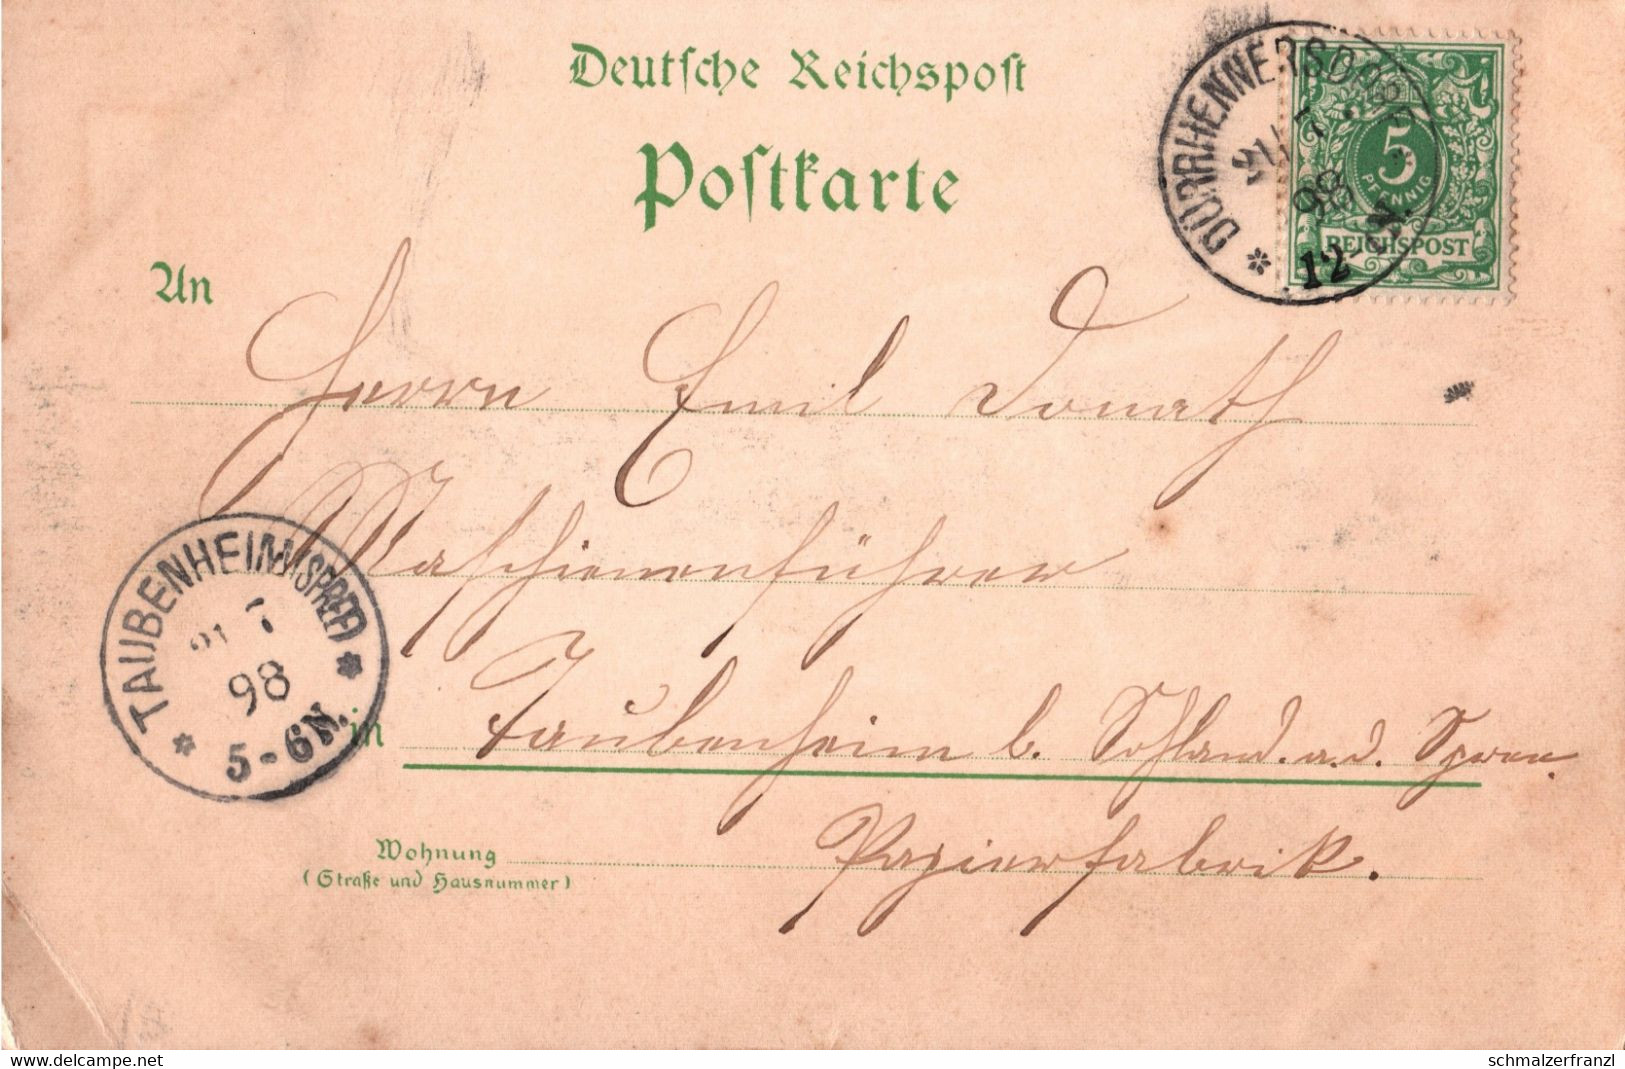 Deutsche Reichspost
Postkarte
DÜRRHENNERSDORF
21 7
98
12-
5
PFENNIG
REICHSPOST
An
Herrn Emil Donath
Maschienenführer
TAUBENHEIM (SPREE)
21 7
98
5-6N.
in Taubenheim b. Sohland a. d. Spree.
Wohnung
(Straße und Hausnummer)
Papierfabrik.
schmalzerfranzl